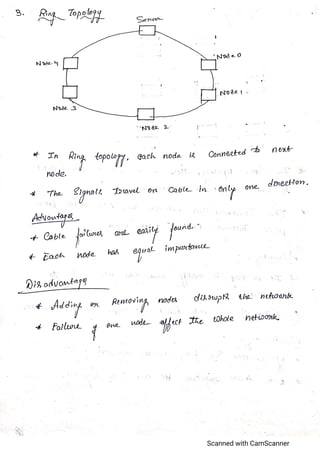 3. Ring Topology
Server
Node 0
Node 4
Node 1
Node 3
Node 2
* In Ring topology, each node is Connected to next
node.
* The Signals Travel on Cable in only one direction.
Advantages
* Cable failures are easily found.
* Each node has equal importance
Disadvantages
* Adding or Removing nodes disrupts the network
* Failure of one node affect the whole network.
Scanned with CamScanner